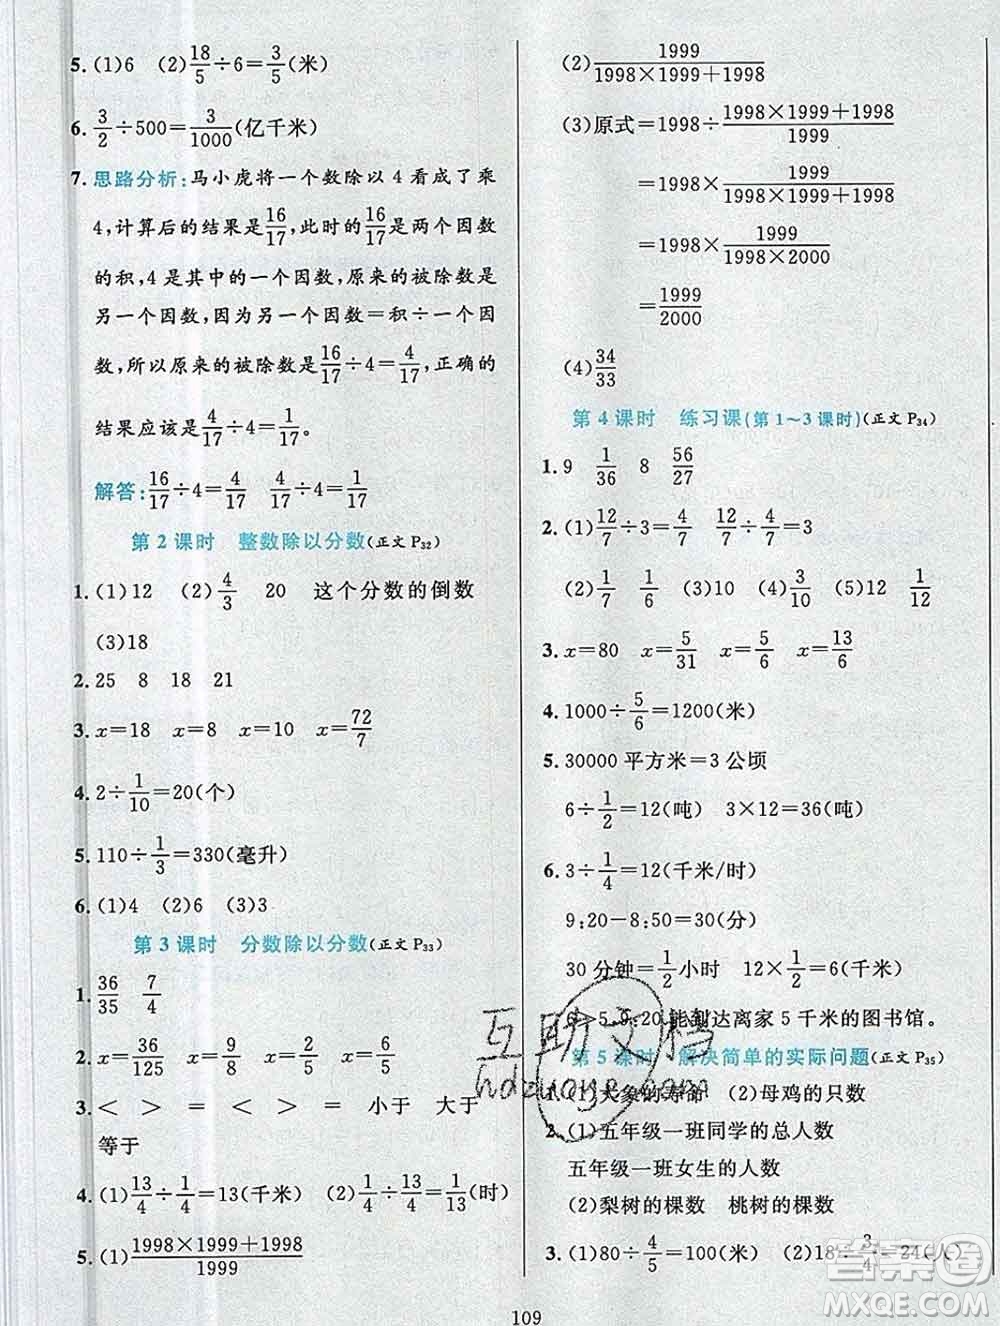 5. (1)6 (2)18/5÷6=3/5(米)
6. 3/2÷500=3/1000(亿千米)
7. 思路分析:马小虎将一个数除以4看成了乘
4,计算后的结果是16/17,此时的16/17是两个因数
的积,4是其中的一个因数,原来的被除数是
另一个因数,因为另一个因数=积÷一个因
数,所以原来的被除数是16/17÷4=4/17,正确的
结果应该是4/17÷4=1/17。
解答:16/17÷4=4/17 4/17÷4=1/17
第2课时 整数除以分数(正文P32)
1. (1)12 (2)4/3 20 这个分数的倒数
(3)18
2. 25 8 18 21
3. x=18 x=8 x=10 x=72/7
4. 2÷1/10=20(个)
5. 110÷1/3=330(毫升)
6. (1)4 (2)6 (3)3
第3课时 分数除以分数(正文P33)
1. 36/35 7/4
2. x=36/125 x=9/8 x=2/3 x=6/5
3. < > = < > = 小于 大于
等于
4. (1)13/4÷1/4=13(千米) (2)1/4÷13/4=1/13(时)
5. (1)1998×1999+1998/1999
(2)1999/1998×1999+1998
(3)原式=1998÷1998×1999+1998/1999
=1998×1999/1998×1999+1998
=1998×1999/1998×2000
=1999/2000
(4)34/33
第4课时 练习课(第1～3课时)(正文P34)
1. 9 1/36 8 56/27
2. (1)12/7÷3=4/7 12/7÷4/7=3
(2)1/7 1/6 (3)10 (4)3/10 (5)12 1/12
3. x=80 x=5/31 x=5/6 x=13/6
4. 1000÷5/6=1200(米)
5. 30000平方米=3公顷
6÷1/2=12(吨) 3×12=36(吨)
6. 3÷1/4=12(千米/时)
9:20-8:50=30(分)
30分钟=1/2小时 12×1/2=6(千米)
6>5,9:20能到达离家5千米的图书馆。
第5课时 解决简单的实际问题(正文P35)
1. (1)大象的寿命 (2)母鸡的只数
2. (1)五年级一班同学的总人数
五年级一班女生的人数
(2)梨树的棵数 桃树的棵数
3. (1)80÷4/5=100(米) (2)18÷3/4=24(人)
109
互助文档
hdzuoye.com
答案圈
MXQE.COM